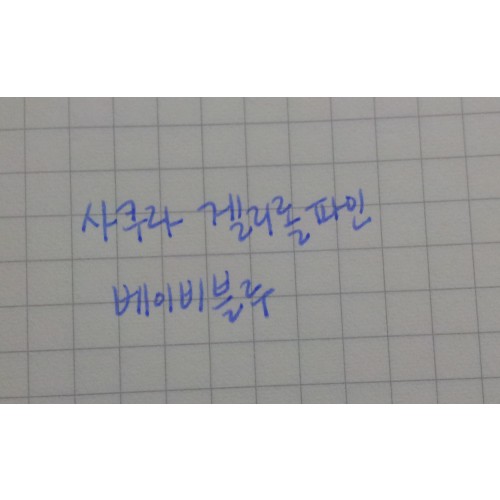 사쿠라 겔리롤 파인
베이비블루